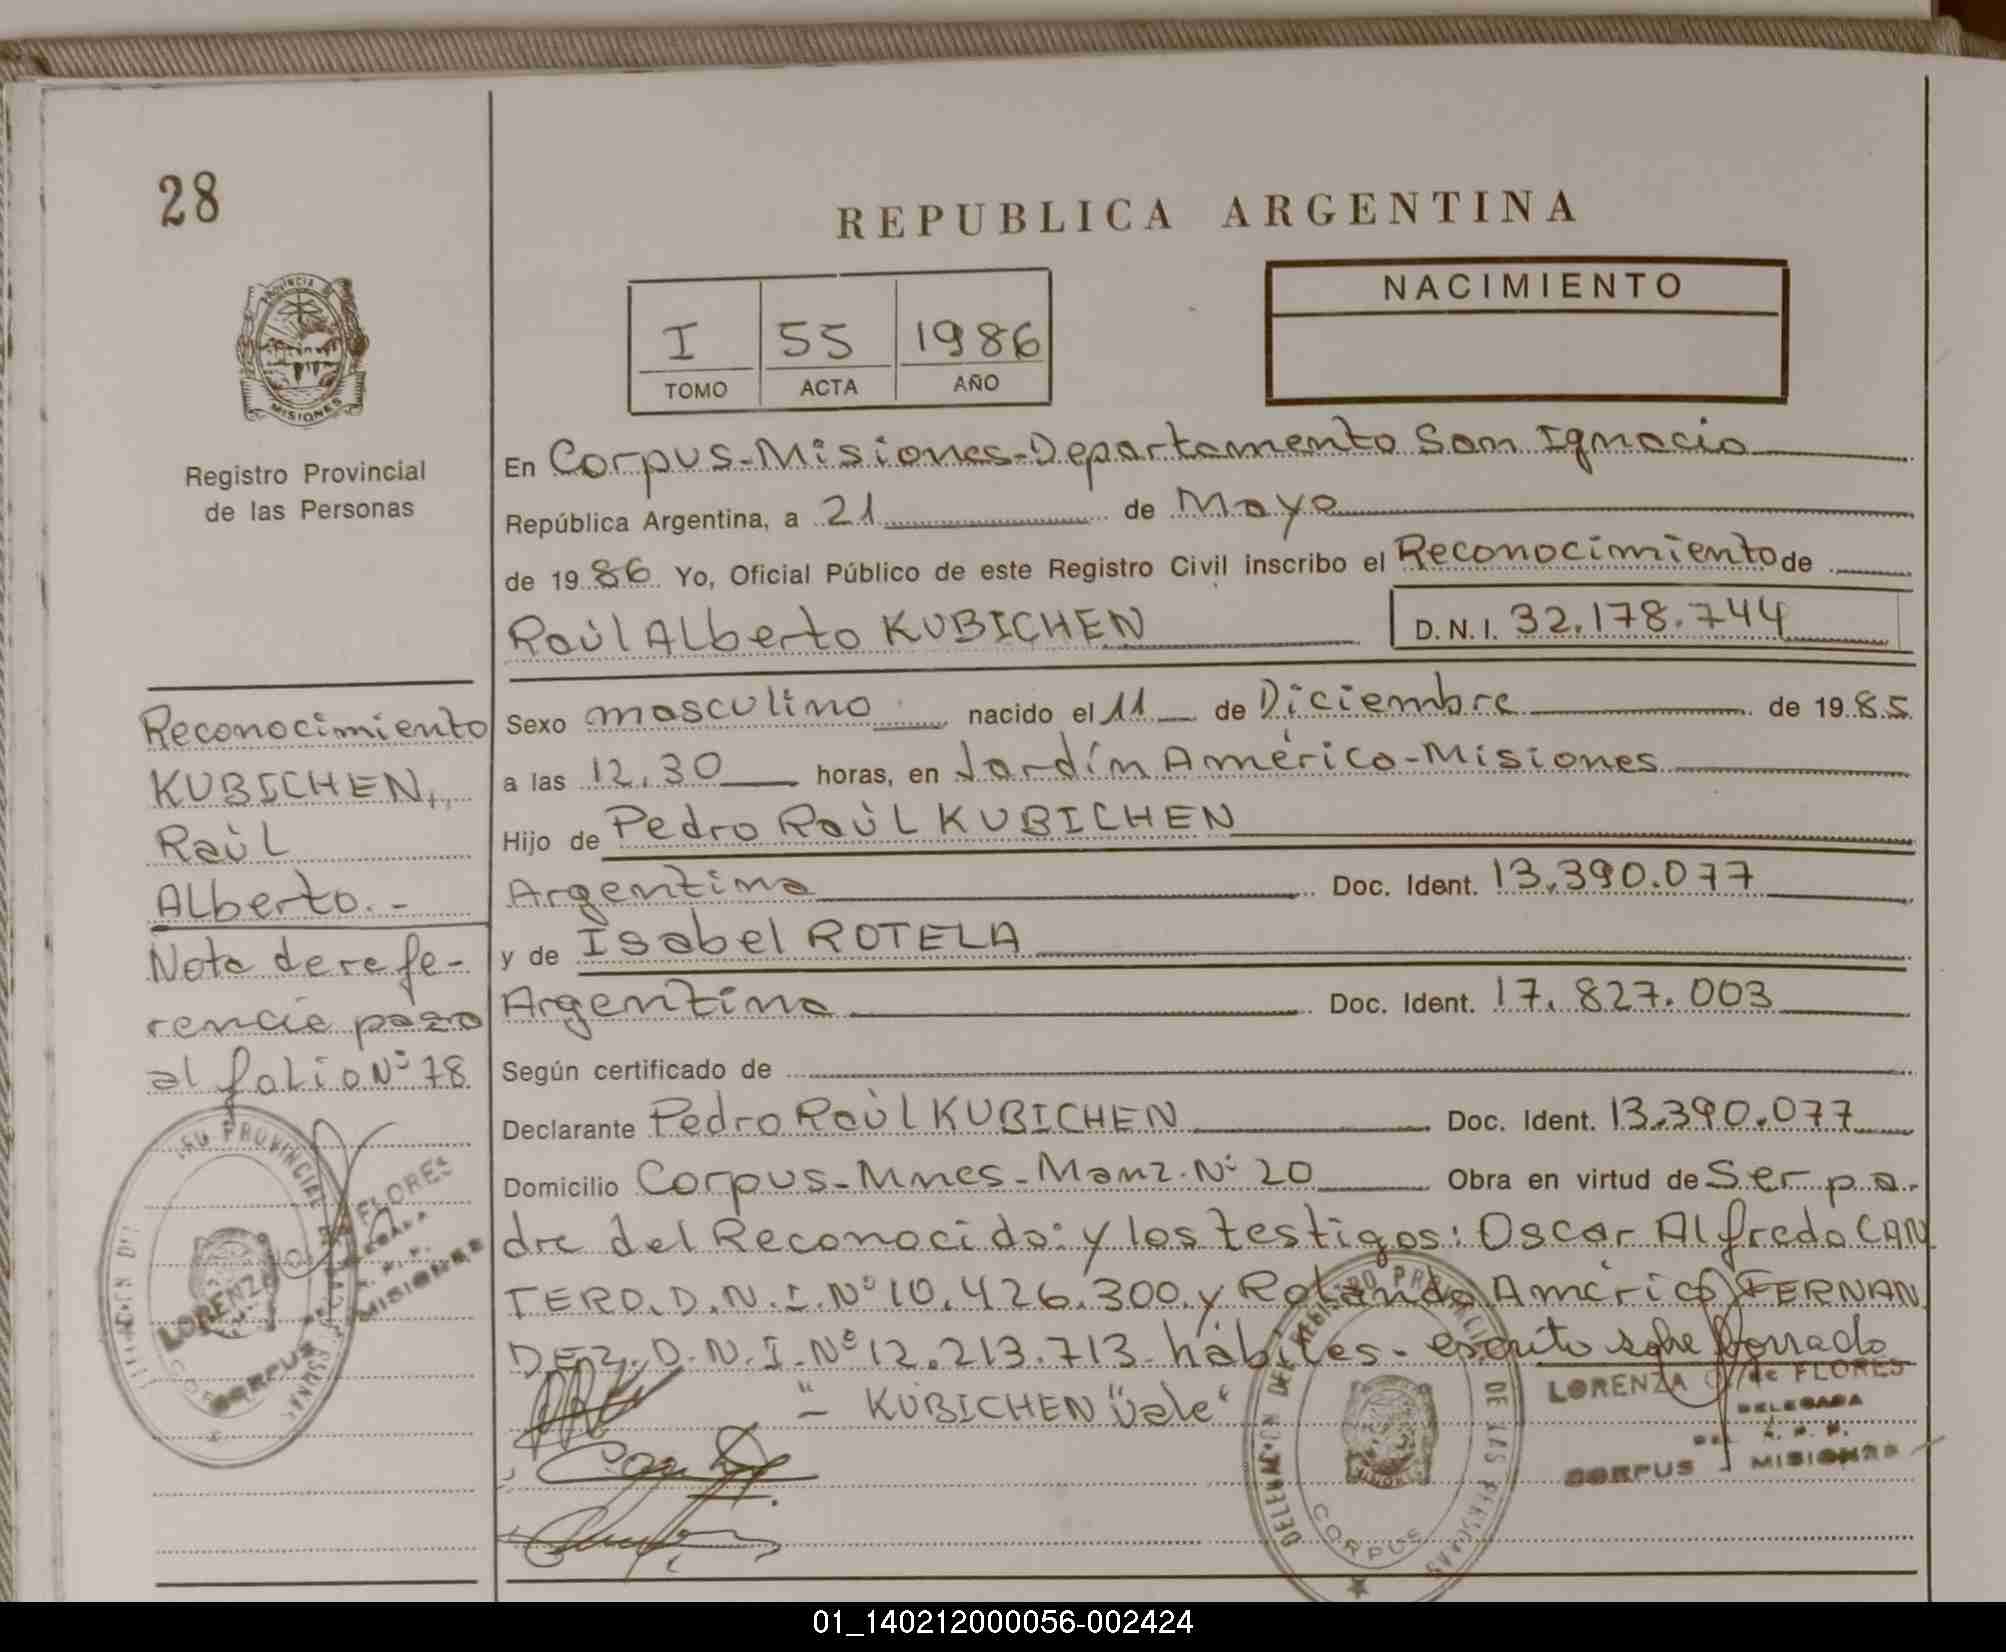 28
REPUBLICA ARGENTINA
PROVINCIA DE
MISIONES
Registro Provincial
de las Personas
I 55 1986
TOMO ACTA AÑO
NACIMIENTO
En Corpus-Misiones-Departamento San Ignacio
República Argentina, a 21 de Mayo
de 1986 Yo, Oficial Público de este Registro Civil inscribo el Reconocimiento de
Raúl Alberto KUBICHEN D.N.I. 32.178.744
Sexo masculino nacido el 11 de Diciembre de 1985
a las 12,30 horas, en Jardín América-Misiones
Hijo de Pedro Raúl KUBICHEN
Argentina Doc. Ident. 13.390.077
y de Isabel ROTELA
Argentina Doc. Ident. 17.827.003
Según certificado de
Declarante Pedro Raúl KUBICHEN Doc. Ident. 13.390.077
Domicilio Corpus-Mnes-Manz.Nº 20 Obra en virtud de Ser pa-
dre del Reconocido: y los testigos: Oscar Alfredo CAN
TERO.D.N.I.Nº 10.426.300 y Rolando Américo FERNAN
DEZ.D.N.I.Nº 12.213.713 hábiles- escrito sobre borrado
"- KUBICHEN "Vale"
LORENZA de FLORES
DELEGADA
CORPUS MISIONES
CORPUS
Reconocimiento
KUBICHEN,
Raúl
Alberto.-
Nota de refe-
rencia paso
al folio Nº 78
LORENZA FLORES
DELEGADA
CORPUS MISIONES
01_140212000056-002424